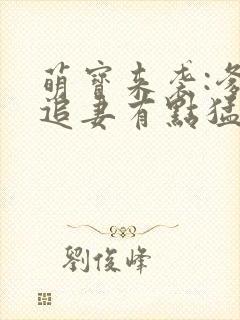 萌寶來袭:爹
追妻有點猛
劉俊峰